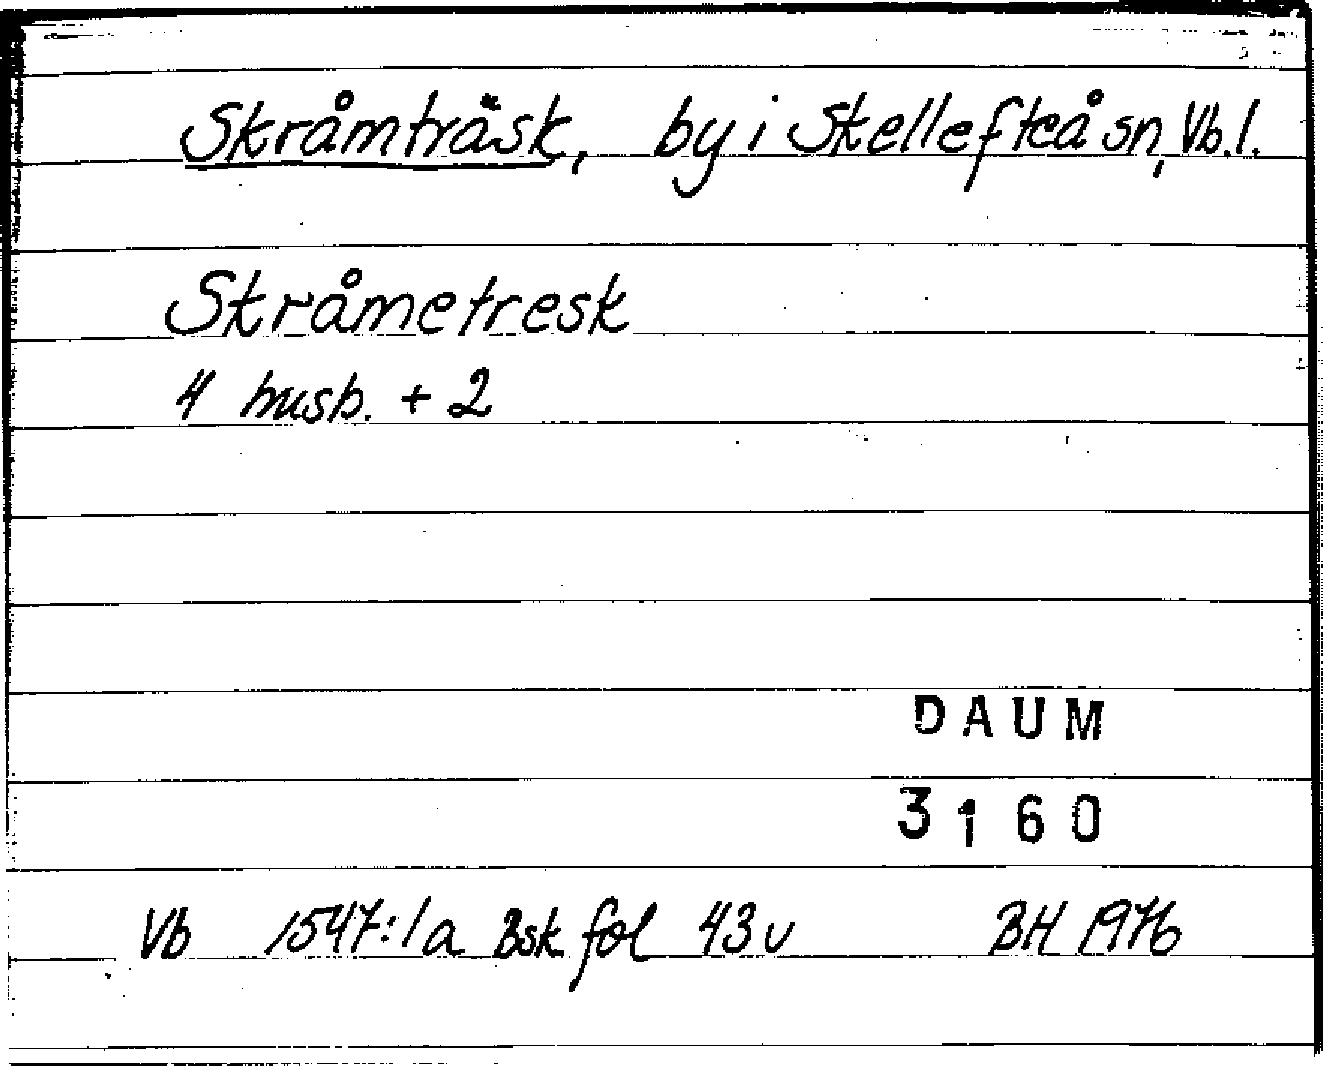 Skråmträsk, by i Skellefteå sn, Vb. l.
Skråmetresk
4 husb. + 2
DAUM
3160
Vb 1547:1a Bsk fol 43v BH 1976